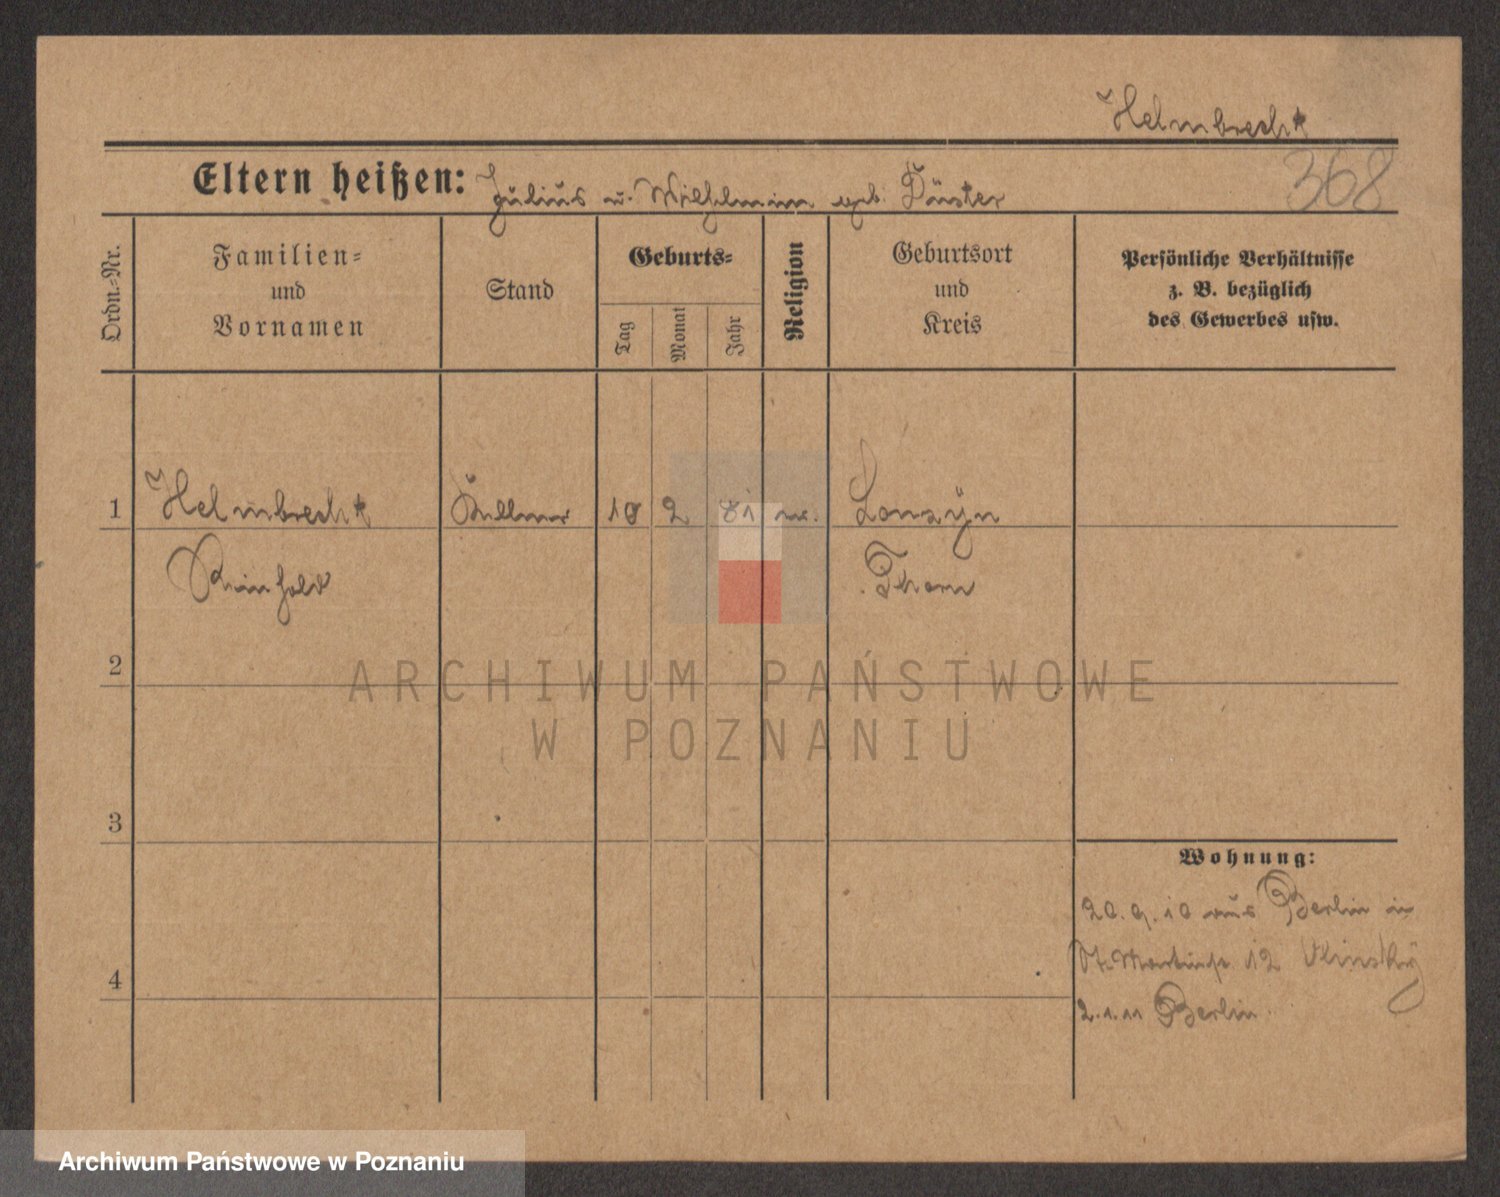 Helmbrecht
368
Eltern heißen: Julius u. Wilhelmine geb. Düster
Ordn.-Nr.
Familien=
und
Vornamen
Stand
Geburts=
Tag
Monat
Jahr
Religion
Geburtsort
und
Kreis
Persönliche Verhältnisse
z. B. bezüglich
des Gewerbes usw.
1 Helmbrecht Kellner 18 2 81 ev. Lonzyn
Reinhold Thorn
2
ARCHIWUM PAŃSTWOWE
W POZNANIU
3
Wohnung:
20.9.10 aus Berlin in
St. Martinstr 12
4
2.1.11 Berlin
Archiwum Państwowe w Poznaniu